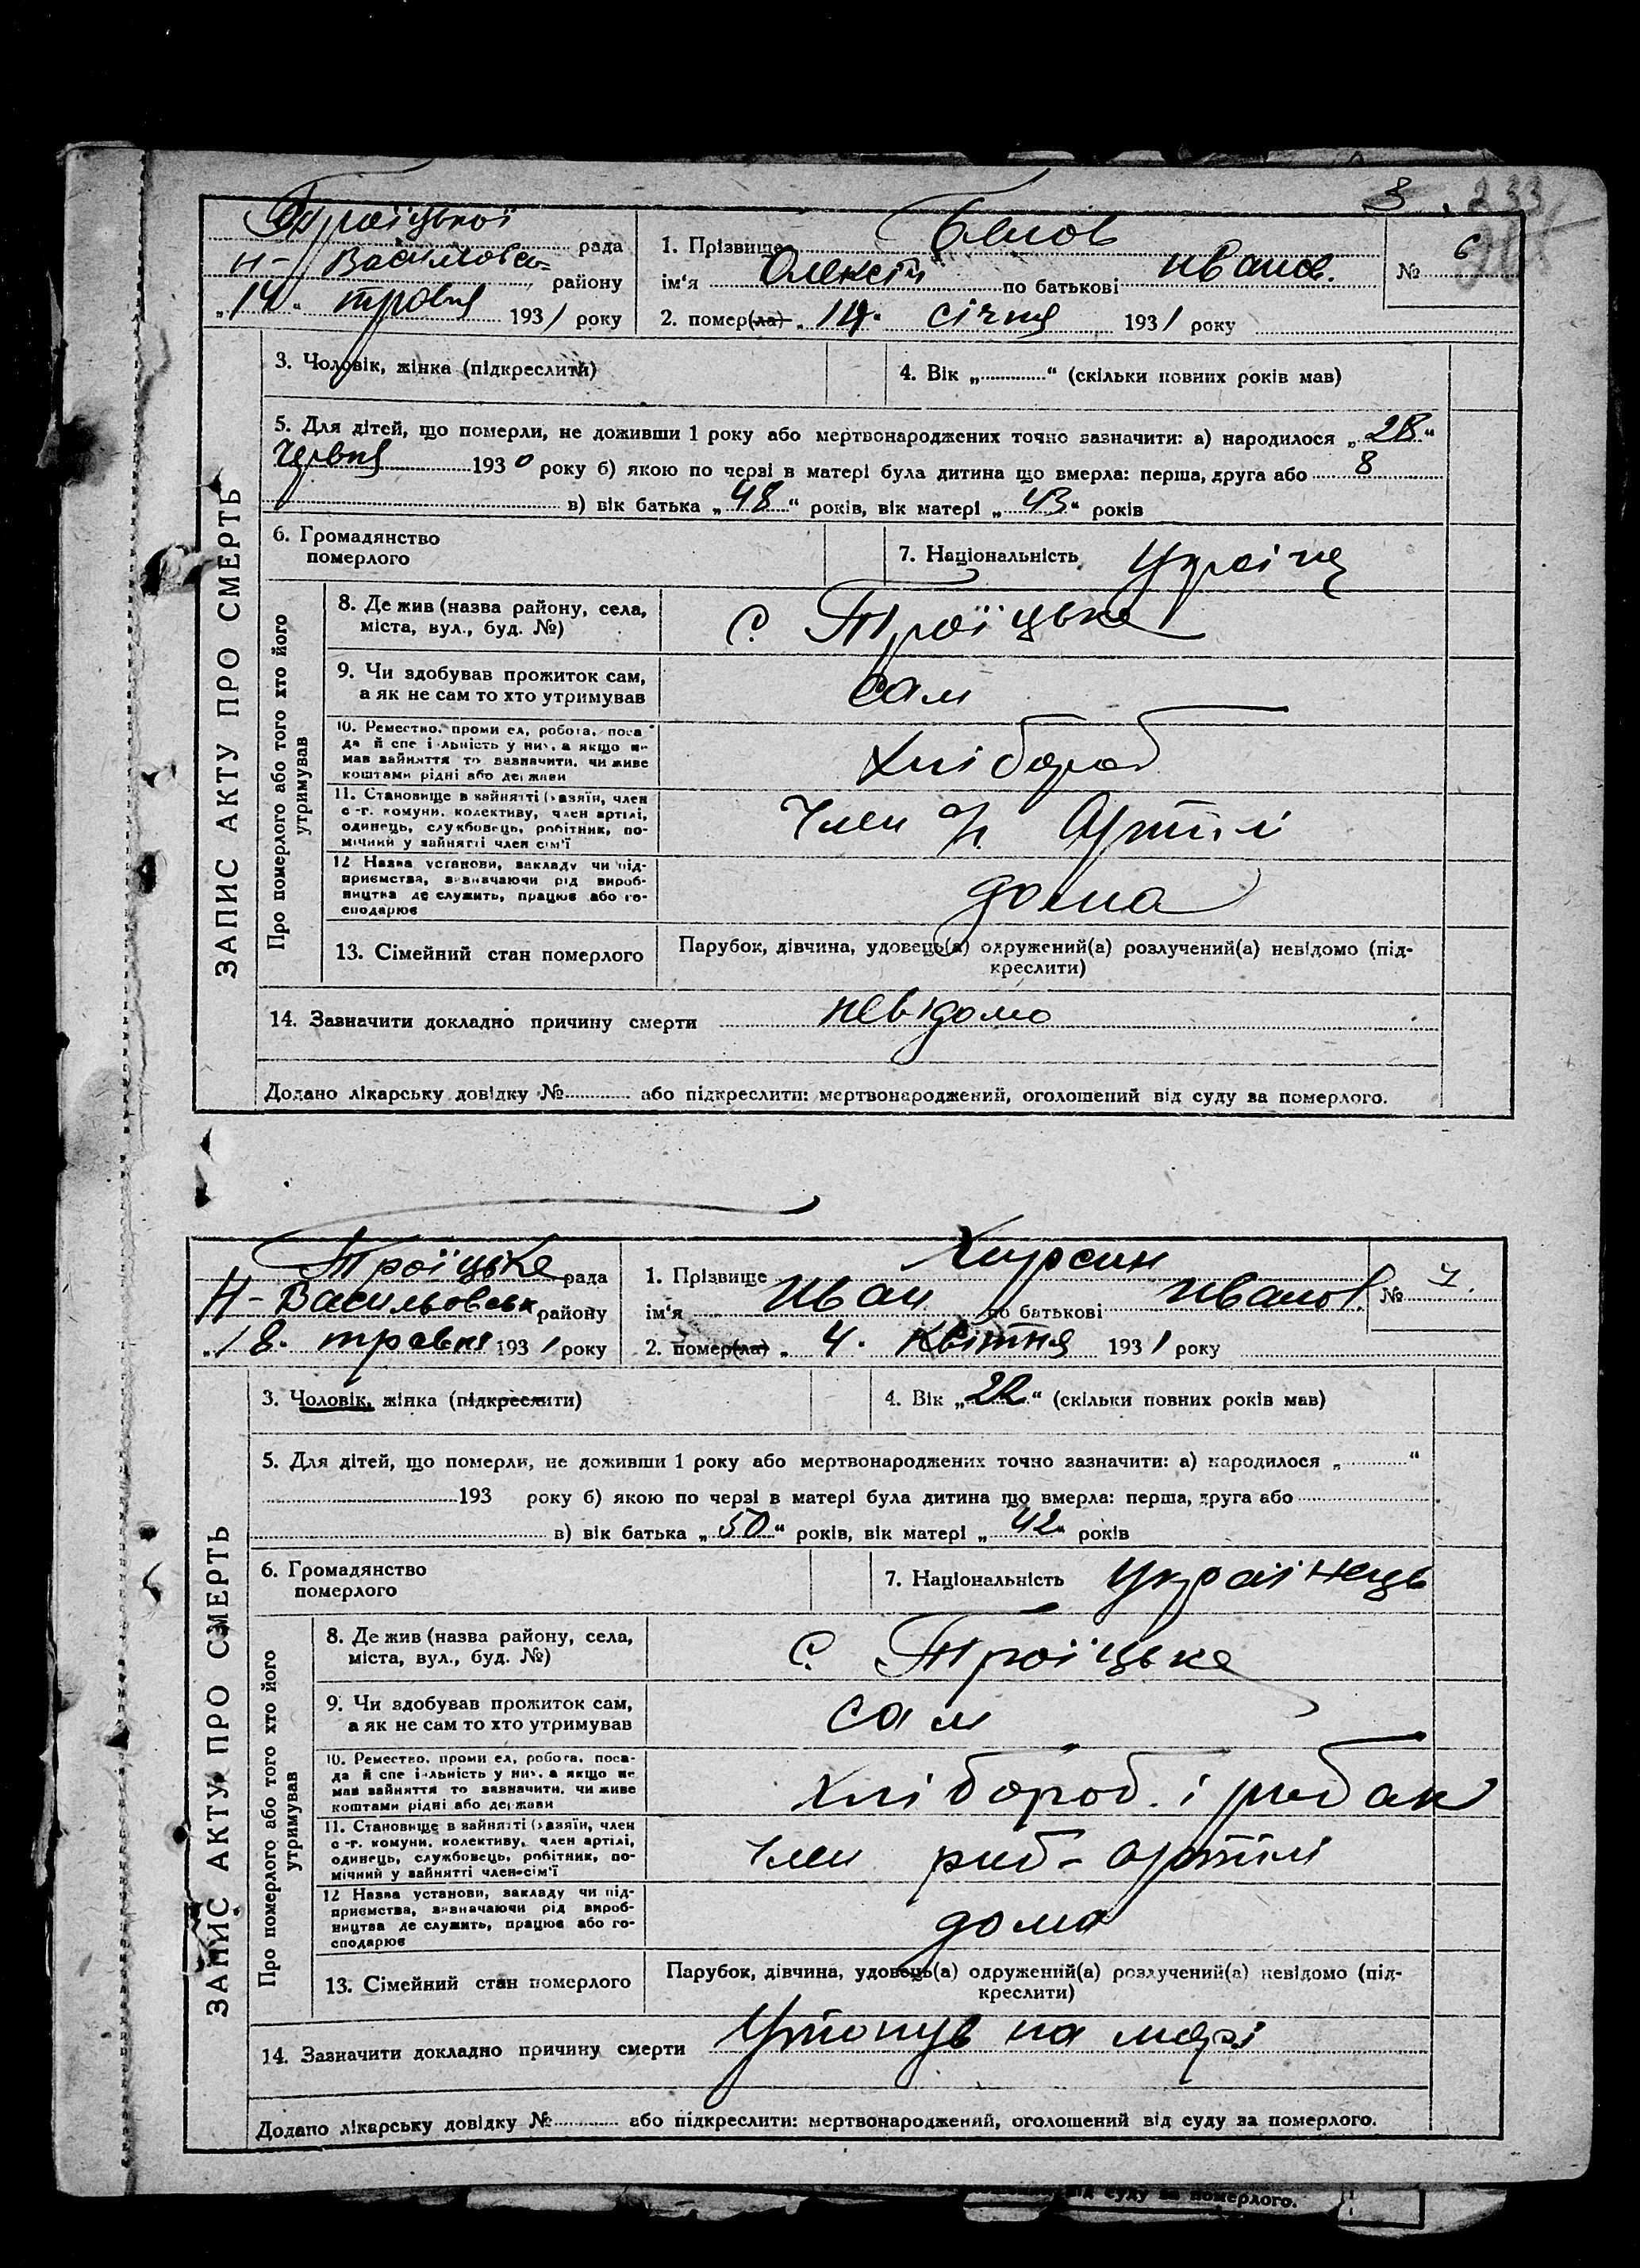 3 233
Троїцької рада
Н-Васильовсь- району
„14“ травня 1931 року
1. Прізвище Белов
ім‘я Олексій по батькові Иванов.
№ 6
2. помер(ла) „14. січня 1931 року
ЗАПИС АКТУ ПРО СМЕРТЬ
3. Чоловік, жінка (підкреслити)
4. Вік „ “ (скільки повних років мав)
5. Для дітей, що померли, не доживши 1 року або мертвонароджених точно зазначити: а) народилося „28“
Червня 1930 року б) якою по черзі в матері була дитина що вмерла: перша, друга або 8
в) вік батька „48“ років, вік матері „43“ років
6. Громадянство
померлого
7. Національність Україн
Про померлого або того хто його
утримував
8. Де жив (назва району, села,
міста, вул., буд. №)
С. Троїцьке
9. Чи здобував прожиток сам,
а як не сам то хто утримував
сам
10. Ремество, проми ел, робота, поса
да й спе і льність у ни, а якщо не
мав зайняття то зазначити, чи живе
коштами рідні або держави
Хлібороб
11. Становище в зайнятті (хазяїн, член
с-г. комуни, колективу, член артілі,
одинець, службовець, робітник, по-
мічний у зайнятті член сім‘ї
Член Артілі
12 Назва установи, закладу чи під-
приємства, зазначаючи рід вироб-
ництва де служить, працює або го-
сподарює
дома
13. Сімейний стан померлого
Парубок, дівчина, удовець(а) одружений(а) розлучений(а) невідомо (під-
креслити)
14. Зазначити докладно причину смерти невідомо
Додано лікарську довідку № або підкреслити: мертвонароджений, оголошений від суду за померлого.
Троїцьке рада
Н-Васильовськ району
„18. травня 1931 року
1. Прізвище Хирсин
ім‘я Иван по батькові Иванов
№ 7.
2. помер(ла) „ 4. квітня 1931 року
ЗАПИС АКТУ ПРО СМЕРТЬ
3. Чоловік, жінка (підкреслити)
4. Вік „22“ (скільки повних років мав)
5. Для дітей, що померли, не доживши 1 року або мертвонароджених точно зазначити: а) народилося „ “
193 року б) якою по черзі в матері була дитина що вмерла: перша, друга або
в) вік батька „50“ років, вік матері „42“ років
6. Громадянство
померлого
7. Національність Українець
Про померлого або того хто його
утримував
8. Де жив (назва району, села,
міста, вул., буд. №)
С. Троїцьке
9. Чи здобував прожиток сам,
а як не сам то хто утримував
сам
10. Ремество, проми ел, робота, поса-
да й спе і льність у ни, а якщо не
мав зайняття то зазначити, чи живе
коштами рідні або держави
Хлібороб і рибак
11. Становище в зайнятті (хазяїн, член
с-г. комуни, колективу, член артілі,
одинець, службовець, робітник, по-
мічний у зайнятті член сім‘ї
Член риб-артілі
12 Назва установи, закладу чи під-
приємства, зазначаючи рід вироб-
ництва де служить, працює або го-
сподарює
дома
13. Сімейний стан померлого
Парубок, дівчина, удовець(а) одружений(а) розлучений(а) невідомо (під-
креслити)
14. Зазначити докладно причину смерти Утонув на морі
Додано лікарську довідку № або підкреслити: мертвонароджений, оголошений від суду за померлого.
від суду за померлого.